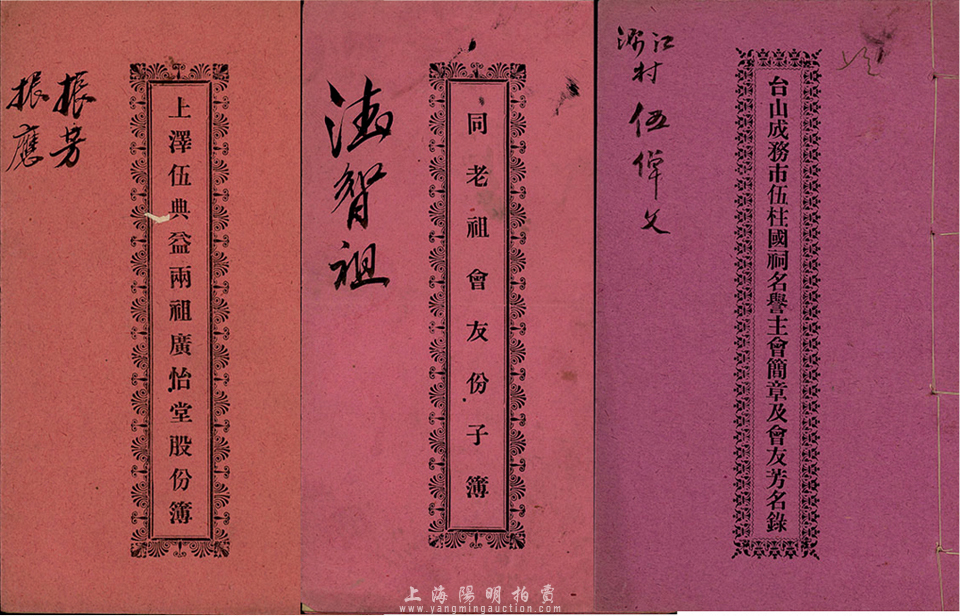 振芳
振應
上澤伍典益兩祖廣怡堂股份簿
同老祖會友份子簿
智祖
台山成務市伍柱國祠名譽主會簡章及會友芳名錄
江
村
伍
父
上海陽明拍賣
www.yangmingauction.com